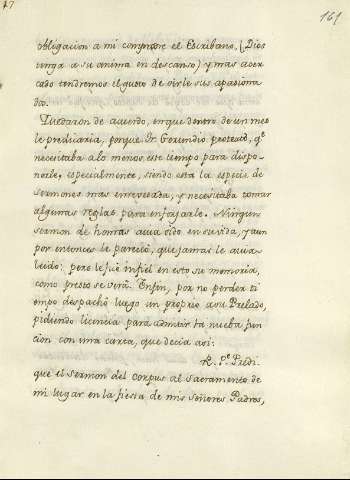 17
161
obligacion a mi compadre el Escribano, (Dios
tenga a su anima en descanso) y mas acer
cado tendremos el gusto de oirle sus apasiona
dos.
Quedaron de acuerdo, en que dentro de un mes
le predicaria, porque Fr. Gerundio protextó, qe.
necesitaba a lo menos este tiempo para dispo-
nerle, especialmente, siendo esta la especie de
sermones mas enrevesada, y necesitaba tomar
algunas reglas para enfajarle. Ningun
sermon de honras avia oido en su vida, y aun
por entonces le pareció, que jamas le avia
leido: pero le fué infiel en esto su memoria,
como presto se verá. Enfin, por no perder ti
empo despachó luego un proprio a su Prelado,
pidiendo licencia para admitir la nueba fun
cion con una carta, que decia asi:
R. Pe. Predi
que el sermon del corpus al sacramento de
mi lugar en la fiesta de mis señores Padres,